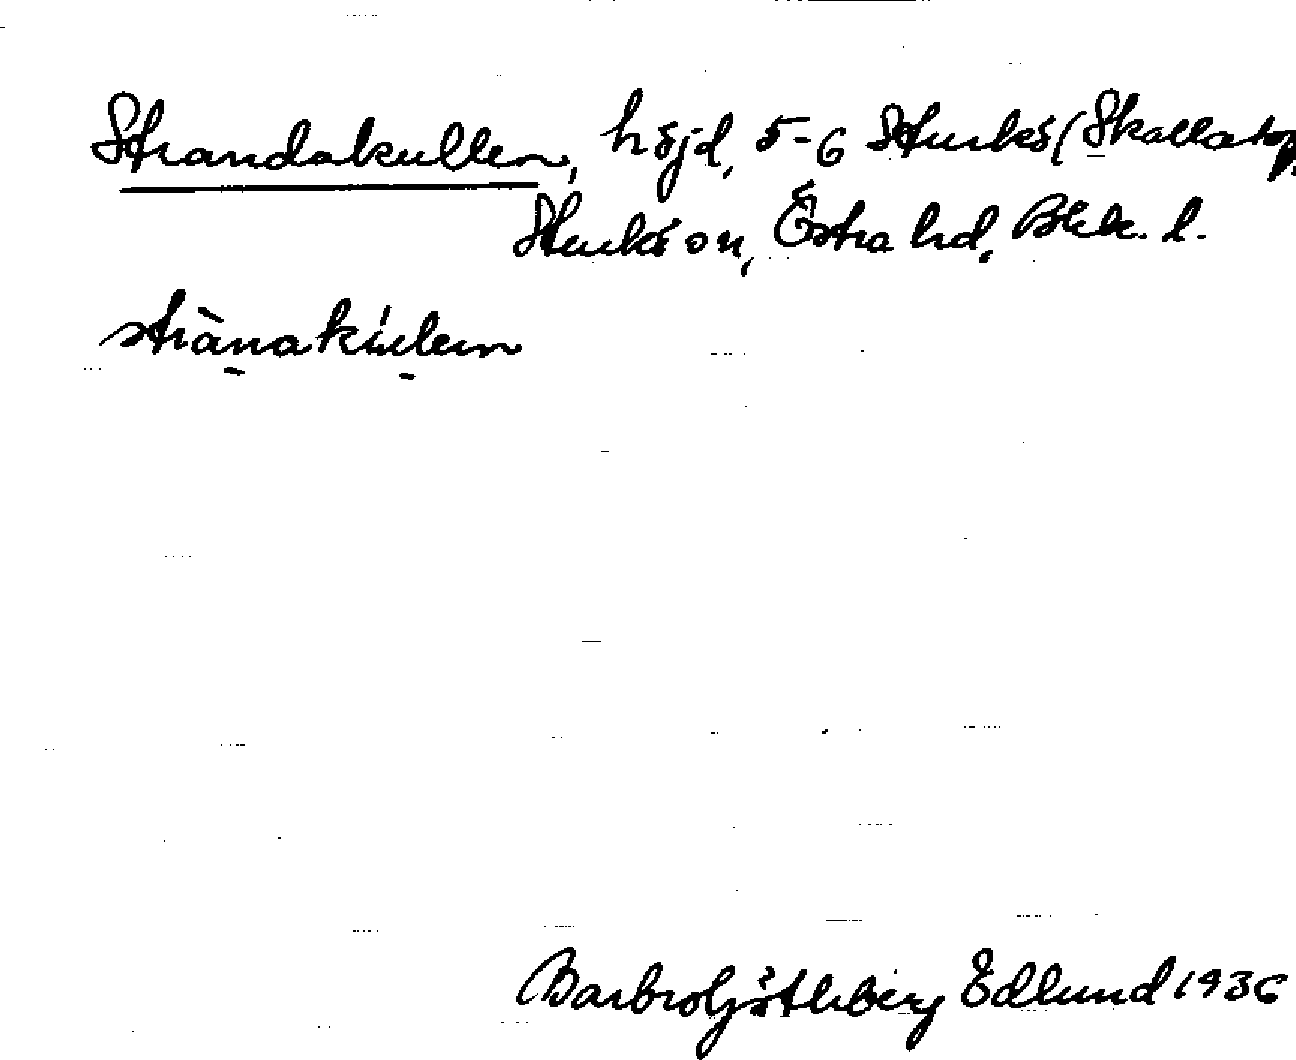 Strandakullen, höjd, 5-6 Sturkö (Skallatorp,
Sturkö sn, Östra hd, Blek. l.
strànakúlen
Barbro Götleberg Edlund 1936